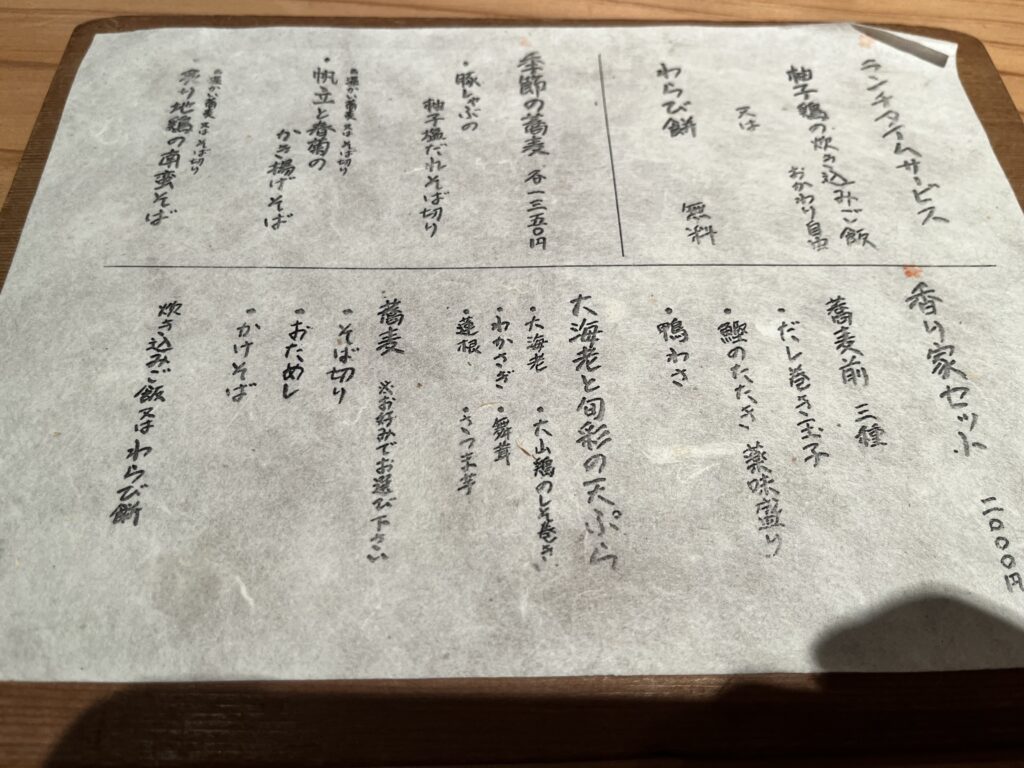 ランチタイムサービス
柚子鶏の炊き込みご飯
おかわり自由
又は
わらび餅
無料
季節の蕎麦 各一三五〇円
・豚しゃぶの
柚子塩だれそば切り
※温かい蕎麦 又は そば切り
・帆立と春菊の
かき揚げそば
※温かい蕎麦 又は そば切り
・炙り地鶏の南蛮そば
香り家セット
二〇〇〇円
蕎麦前 三種
・だし巻き玉子
・鰹のたたき 薬味盛り
・鴨わさ
大海老と旬彩の天ぷら
・大海老 ・大山鶏のしそ巻き
・わかさぎ ・舞茸
・蓮根 ・さつま芋
蕎麦 ※お好みでお選び下さい
・そば切り
・おためし
・かけそば
炊き込みご飯 又は わらび餅